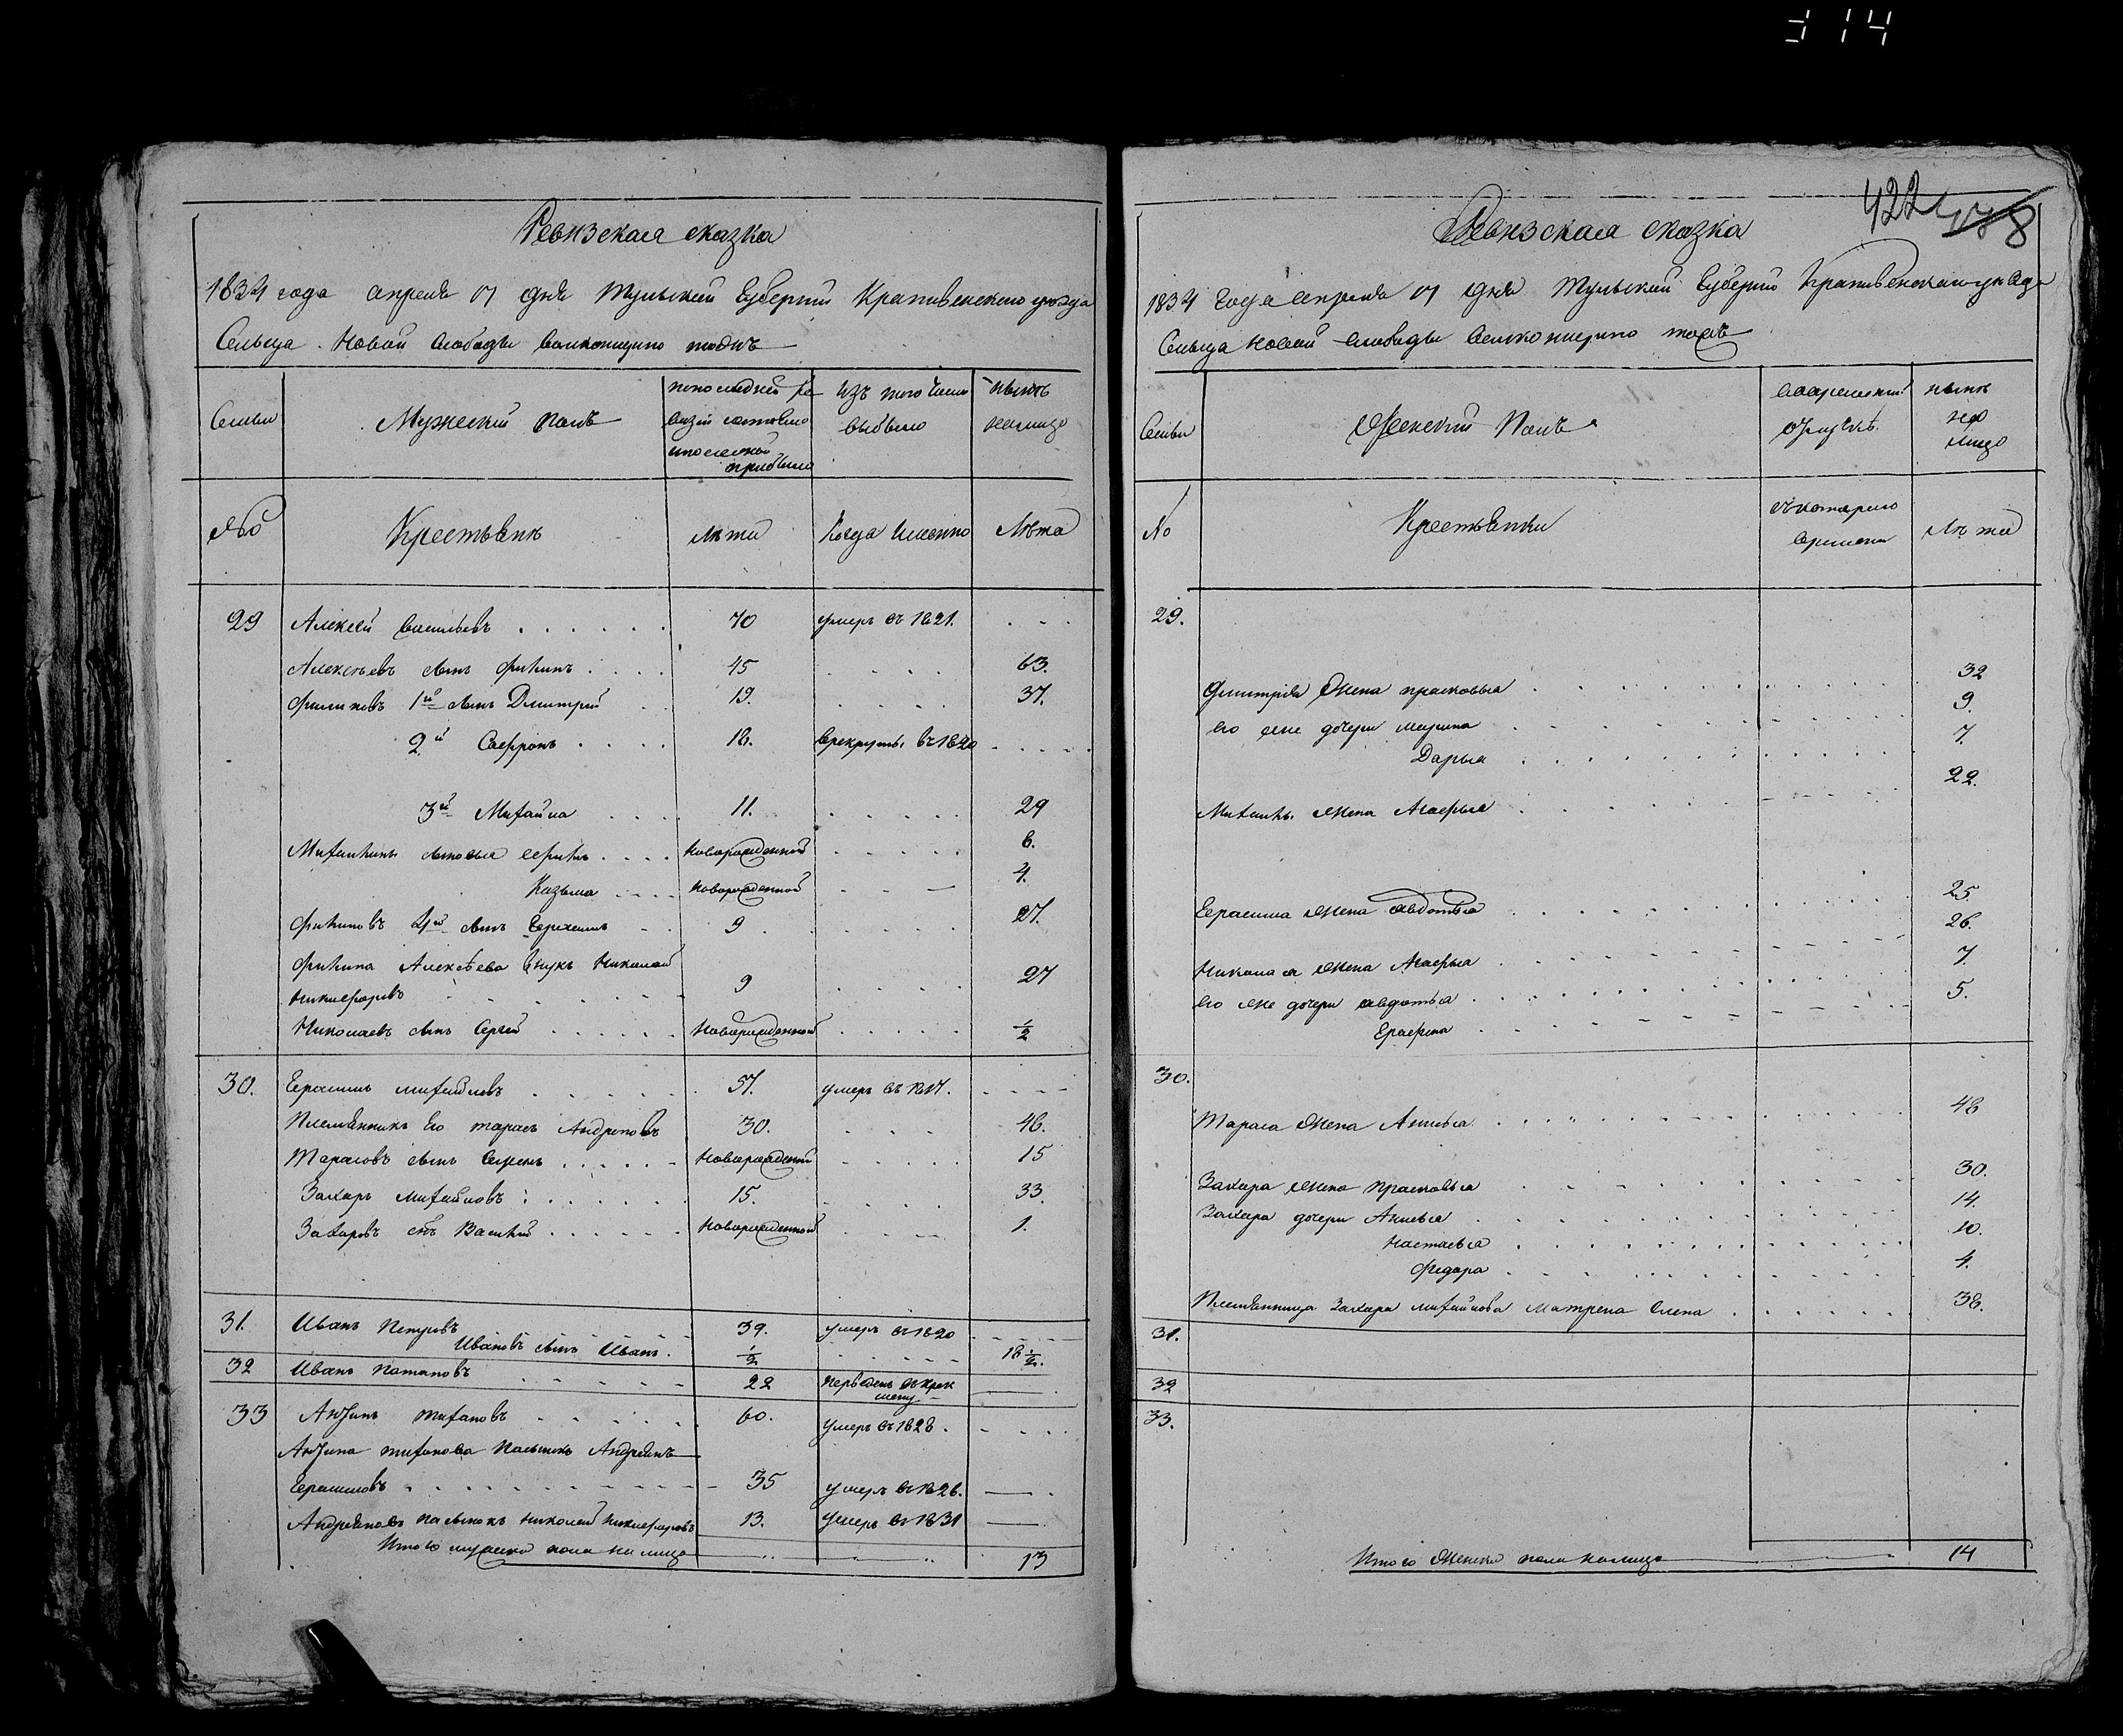 314
422 478
Ревизская сказка
1834 года апреля 17 дня Тульской Губернии Крапивенского уезда
Сельца Новой слободы тожъ
Семьи
Мужеский полъ
По последней ре
визии состояло
и после оной
прибыло
Изъ того числа
выбыло
Ныне
на лицо
№
Крестьяне
Лета
Когда именно
Лета
29 Алексей Васильевъ 70 умеръ въ 1821.
Алексеевъ сынъ Филипъ 45 63.
Филиповъ 1й сынъ Дмитрий 19. 37.
2й Сафронъ 18. в рекруты въ 1820
3й Михайла 11. 29
Михайлины сыновья новорожденной 6.
Казьма новорожденной 4.
Филиповъ 4й сынъ Герасимъ 9 27.
Филипа Алексеева внукъ Николай
Никифоровъ 9 27
Николаевъ сынъ Сергей новорожденной ½
30. Герасимъ Михайловъ 57. умеръ въ 1817.
Племянникъ Его Тарасъ Андроновъ 30. 48.
Тарасовъ сынъ Семенъ новорожденной 15
Захаръ Михайловъ 15. 33.
Захаровъ сынъ Василий новорожденной 1.
31. Иванъ Петровъ 39. умеръ въ 1820
Ивановъ сынъ Иванъ ½ 18½.
32 Иванъ Потаповъ 22
33 60. умеръ въ 1828.
Андреянъ
Герасимовъ 35 умеръ въ 1826.
Андреяновъ пасынокъ Николай Никифоровъ 13. умеръ въ 1831
Итого мужска пола на лицо 13
Ревизская сказка
1834 Года Апреля 17 дня Тульской Губернии Крапивенского уезда
Сельца Новой Слободы тожъ
Семьи
Женский Полъ
Во временной
отлучке.
Ныне
на
лицо
№
Крестьянки
Съ котораго
времени
Лета
29.
Дмитрия Жена Прасковья 32
его же дочери Марина 9.
Дарья 7.
Михайлы жена Агафья 22.
Герасима Жена Авдотья 25.
Николая Жена Агафья 26.
его же дочери Авдотья 7.
5.
30.
Тараса Жена Анисья 48
Захара жена Прасковья 30.
Захара дочери Анисья 14.
Настасья 10.
Федора 4.
Племянница Захара Михайлова Матрена 38.
31.
32
33.
Итого Женска пола налицо 14